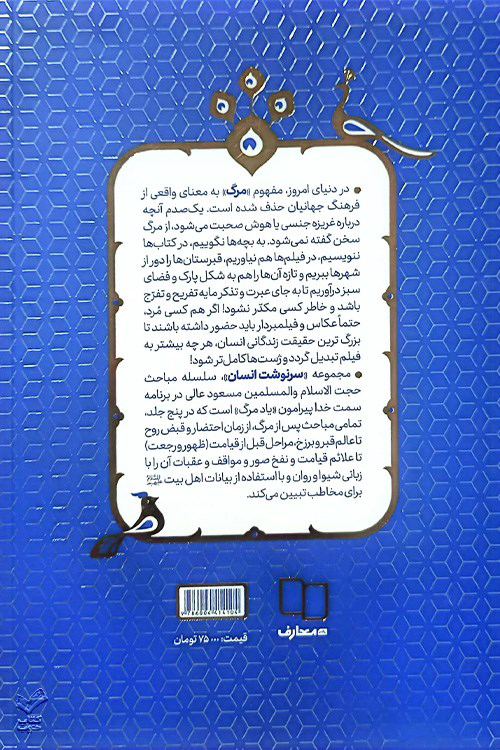 • در دنیای امروز، مفهوم «مرگ» به معنای واقعی از
فرهنگ جهانیان حذف شده است. یک‌صدم آنچه
درباره غریزه جنسی یا هوش صحبت می‌شود، از مرگ
سخن گفته نمی‌شود. به بچه‌ها نگوییم، در کتاب‌ها
ننویسیم، در فیلم‌ها هم نیاوریم، قبرستان‌ها را دور از
شهرها ببریم و تازه آن‌ها را هم به شکل پارک و فضای
سبز درآوریم تا به جای عبرت و تذکر مایه تفریح و تفرّج
باشد و خاطر کسی مکدّر نشود! اگر هم کسی مُرد،
حتماً عکاس و فیلمبردار باید حضور داشته باشند تا
بزرگ ترین حقیقت زندگانی انسان، هر چه بیشتر به
فیلم تبدیل گردد و ژست‌ها کامل‌تر شود!
• مجموعه «سرنوشت انسان»، سلسله مباحث
حجت الاسلام والمسلمین مسعود عالی در برنامه
سمت خدا پیرامون «یاد مرگ» است که در پنج جلد،
تمامی مباحث پس از مرگ، از زمان احتضار و قبض روح
تا عالم قبر و برزخ، مراحل قبل از قیامت (ظهور و رجعت)
تا علائم قیامت و نفخ صور و مواقف و عقبات آن را با
زبانی شیوا و روان و با استفاده از بیانات اهل بیت
برای مخاطب تبیین می‌کند.
9786004414104
معارف
قیمت: ۷۵۰۰۰ تومان